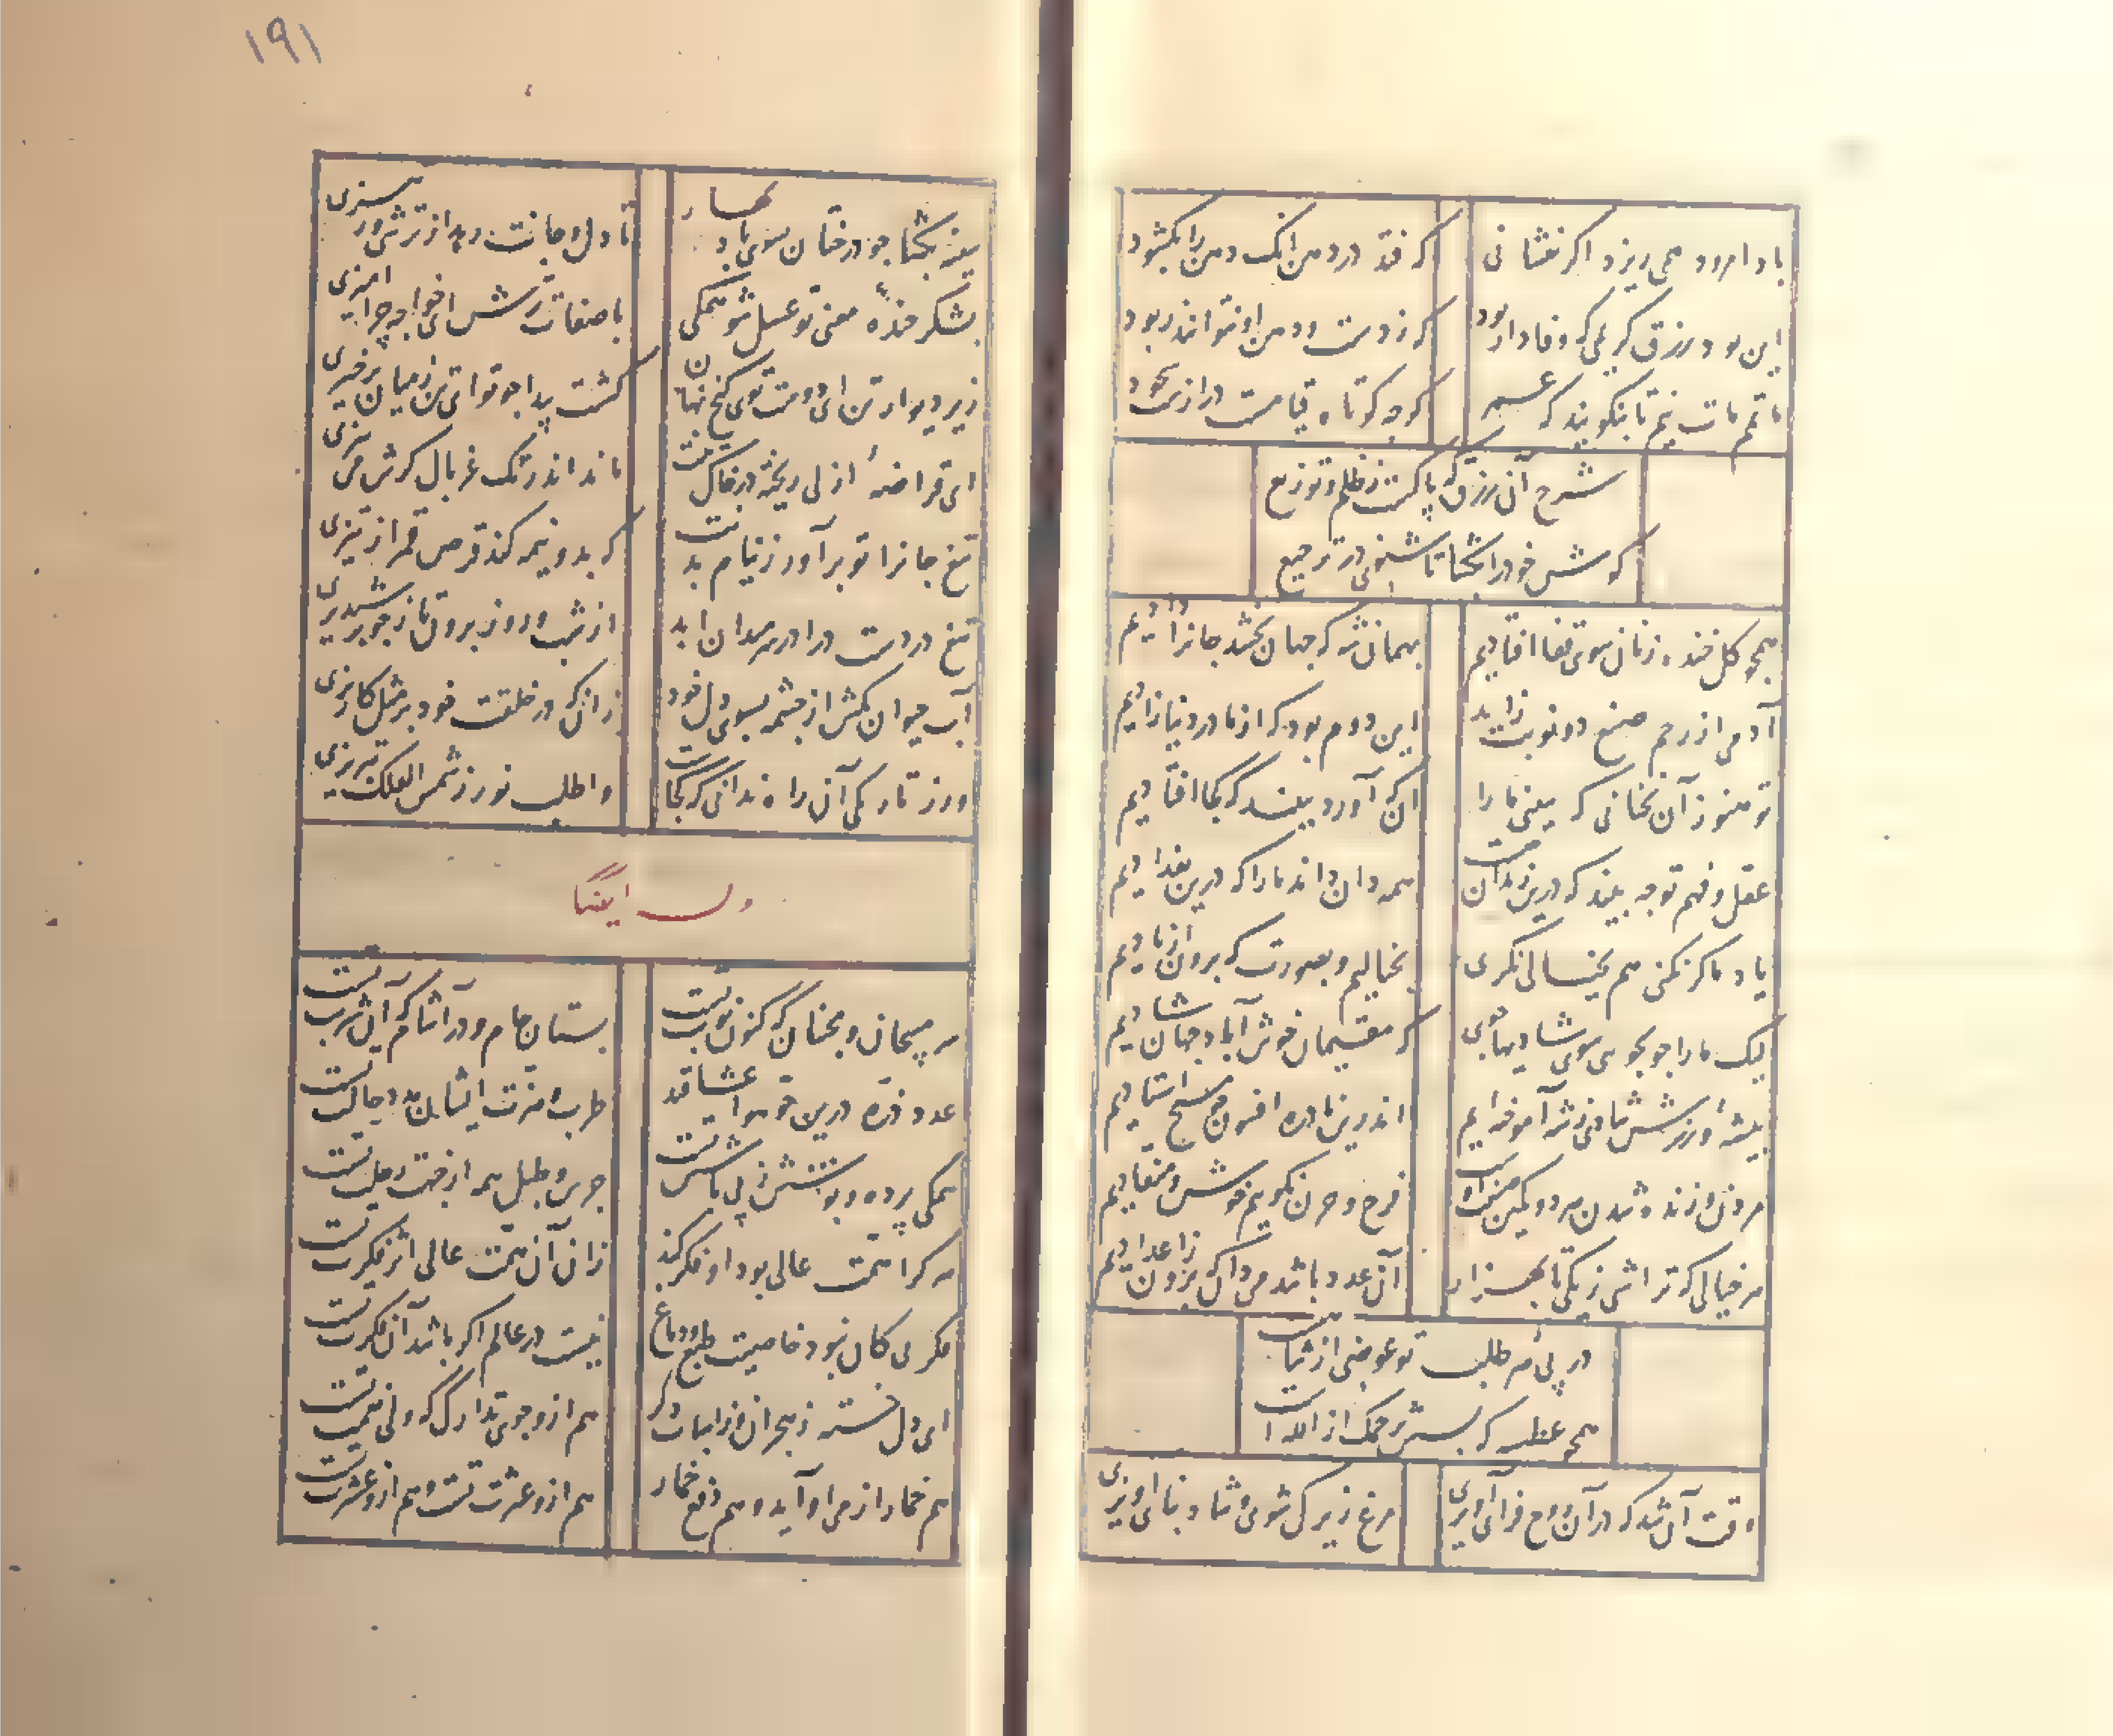 باد امرود همی ریزد اگر نفشانی
که فتد در دهن آنک دهن را بگشود
این بود رزق کریمی که وفادار بود
که ز دست و دهن او نتواند ربود
ماتم مات نیم تا بنگویند که
کرچه کوتاه قیامست درازست
شرح آن رزق که پاکست ز ظلم و توزیع
گوش خود را بگشا تا شنوی در ترجیع
همچو کل خنده زنان سوی قفا افتادیم
بهمان شه که جهان بخشد جانرا دادیم
آدمی از رحم صنع دو نوبت زاید
این دوم بود که از مادر دنیا زادیم
تو هنوز آن که بینی ما را
آنکه آورد بیند که کجا افتادیم
عقل و فهم تو چه بیند که درین زندان
همه دان داند ما را که درین بغدادیم
یاد ما کر نکنی هم بخیالی نکری
بخیالیم و بصورت که برون زان بادیم
لیک ما را چو بجویی سوی شادیها جوی
که مقیمان خوش آباد جهان شادیم
پیشهٔ ورزش شادی ز شه آموخته‌ایم
اندرین نادره افسون مسیح استادیم
مردن و زنده شدن هر دو یکی صنعت ماست
فرح و حزن نکوییم خوش و منقادیم
هر خیالی که تراشی ز یکی تا بهزار
آن عدد باشد می‌دان که برون ز اعدادیم
در پی هر طلب تو عوضی از شاهست
همچو عطسه که پسش یرحمک از الله است
وقت آن شد که در آن روح فزا آویزی
مرغ زیرک شوی و شاد دوپا آویزی
۱۹۱
سینه بکشا چو درختان سوی باد بهار
تا دل و جانت رهد از ترشی و ریزی
بشکر خندهٔ معنی تو عسل شو همکی
با صفات ترش ای خواجه چرا امیزی
زیر دیوار تن ای دوست توی کنج نهان
کشت پیدا چو تو ای تن ز میان برخیزی
ای قراضهٔ ازلی ریخته در خاک تنت
ماند اندر تک غربال کرش می بیزی
تیغ جانرا تو برآور ز نیام بدنت
که بدو نیمه کند قرص قمر از تیزی
تیغ در دست درا در سر میدان ابد
از شب و روز برون تاز چو بر شبدیزی
آب حیوان بکش از چشمه بسوی دل خود
زانکه در خلقت خود بر مثل کاریزی
ور ز تاریکی آن راه ندانی که کجاست
واطلب نور ز شمس الفلک تبریزی
وله ایضا
سر مپیچان و بجنبان که کنون نوبت تست
بستان جام و درآشام که آن شربت تست
عدد ذره درین جو هوا عشاقند
طرب و عزت ایشان مدد حالت تست
همکی پرده و پوشش ز پی باشش تست
جرس و طبل همه از جهت رحلت تست
هر کرا همت عالی بود او فکر کند
زان آن همت عالی اثر فکرت تست
فکر بی کان نبود خاصیت طبع و دماغ
نیست در عالم اکر باشد آن فکرت تست
ای دل خسته ز هجران و ز اسباب دگر
هم ازو جوی تدارک که ولی نعمت تست
هم خمار از می او آید و هم دفع خمار
هم ازو عثرت تست و هم ازو عشرت تست